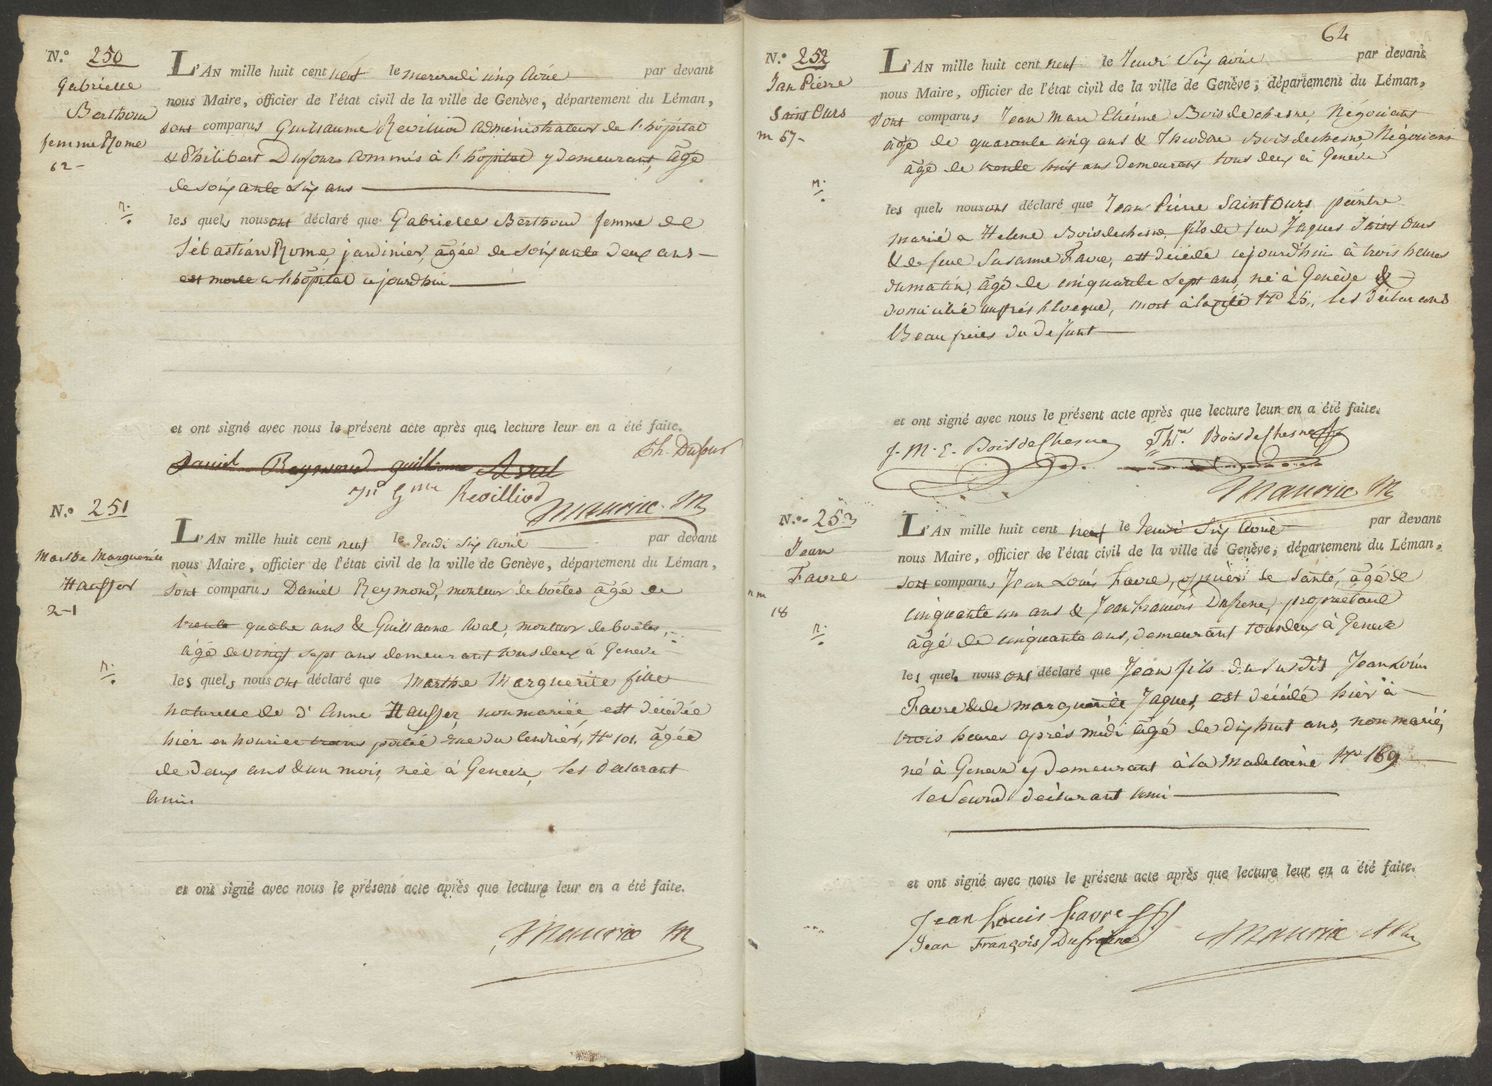 N.º 250
Gabrielle
Berthoud
femme Rome
62-
L'AN mille huit cent neuf le mercredi cinq Avril par devant
nous Maire, officier de l'état civil de la ville de Genève, département du Léman,
sont comparus Guillaume Revilliod administrateur de l'hôpital
& Philibert Dufour commis à l'hôpital y demeurant, âgé
de soixante six ans
les quels nous ont déclaré que Gabrielle Berthoud femme de
Sébastian Rome, jardinier, âgée de soixante deux ans
est morte a l'hôpital cejourdhui
et ont signé avec nous le présent acte après que lecture leur en a été faite.
Ph. Dufour
Daniel Reymond guillaume Aval
Gme Revilliod
Maurice M
N.º 251
Marthe Marguerite
Hausser
2-1
L'AN mille huit cent neuf le Jeudi Six Avril par devant
nous Maire, officier de l'état civil de la ville de Genève, département du Léman,
sont comparus Daniel Reymond, monteur de boëtes âgé de
trente quatre ans & Guillaume Aval, monteur de boëtes,
âgé de vingt sept ans demeurant tous deux à Genève
les quels nous ont déclaré que Marthe Marguerite fille
naturelle de d'Anne Hausser non mariée est décédée
hier en nourice rue du Cendrier, No 101. âgée
de deux ans & un mois, née à Geneve, les déclarant
amis
et ont signé avec nous le présent acte après que lecture leur en a été faite.
Maurice M
64
N.º 252
Jean Pierre
Saint Ours
m 57-
L'AN mille huit cent neuf le Jeudi Six avril par devant
nous Maire, officier de l'état civil de la ville de Genève, département du Léman,
sont comparus Jean Marc Etienne Bois de chesne, Négociant
âgé de quarante cinq ans & Theodre Bois de chesne, Négociant
âgé de trente huit ans demeurant tous deux à Geneve
les quels nous ont déclaré que Jean Pierre Saint Ours peintre
marié a Helene Bois de chesne, fils de feu Jaques Saint Ours
& de feue Susanne Favre, est décédé cejourdhui à trois heures
du matin, âgé de cinquante sept ans, né à Genève &
domicilié aux Prés l'Evêque, mort à la cité No 25, les déclarans
Beaufreres du defunt
et ont signé avec nous le présent acte après que lecture leur en a été faite.
J. M. E. Bois de Chesne Thre. Bois de Chesne
Maurice M
N.º 253
Jean
Favre
nm
18
L'AN mille huit cent neuf le Jeudi Six Avril par devant
nous Maire, officier de l'état civil de la ville de Genève, département du Léman,
sont comparus Jean Louis Favre, officier de santé, âgé de
cinquante un ans & Jean François Dufrene, propriétaire
âgé de cinquante ans, demeurant tous deux à Geneve
les quels nous ont déclaré que Jean fils du susdit Jean Louis
Favre & de marguerite Jaques, est décédé hier à
trois heures après midi âgé de dix huit ans, non marié,
né à Geneve y demeurant à la Madelaine No 169
le Second déclarant ami
et ont signé avec nous le présent acte après que lecture leur en a été faite.
Jean Louis Favre
Jean François Dufresne
Maurice M